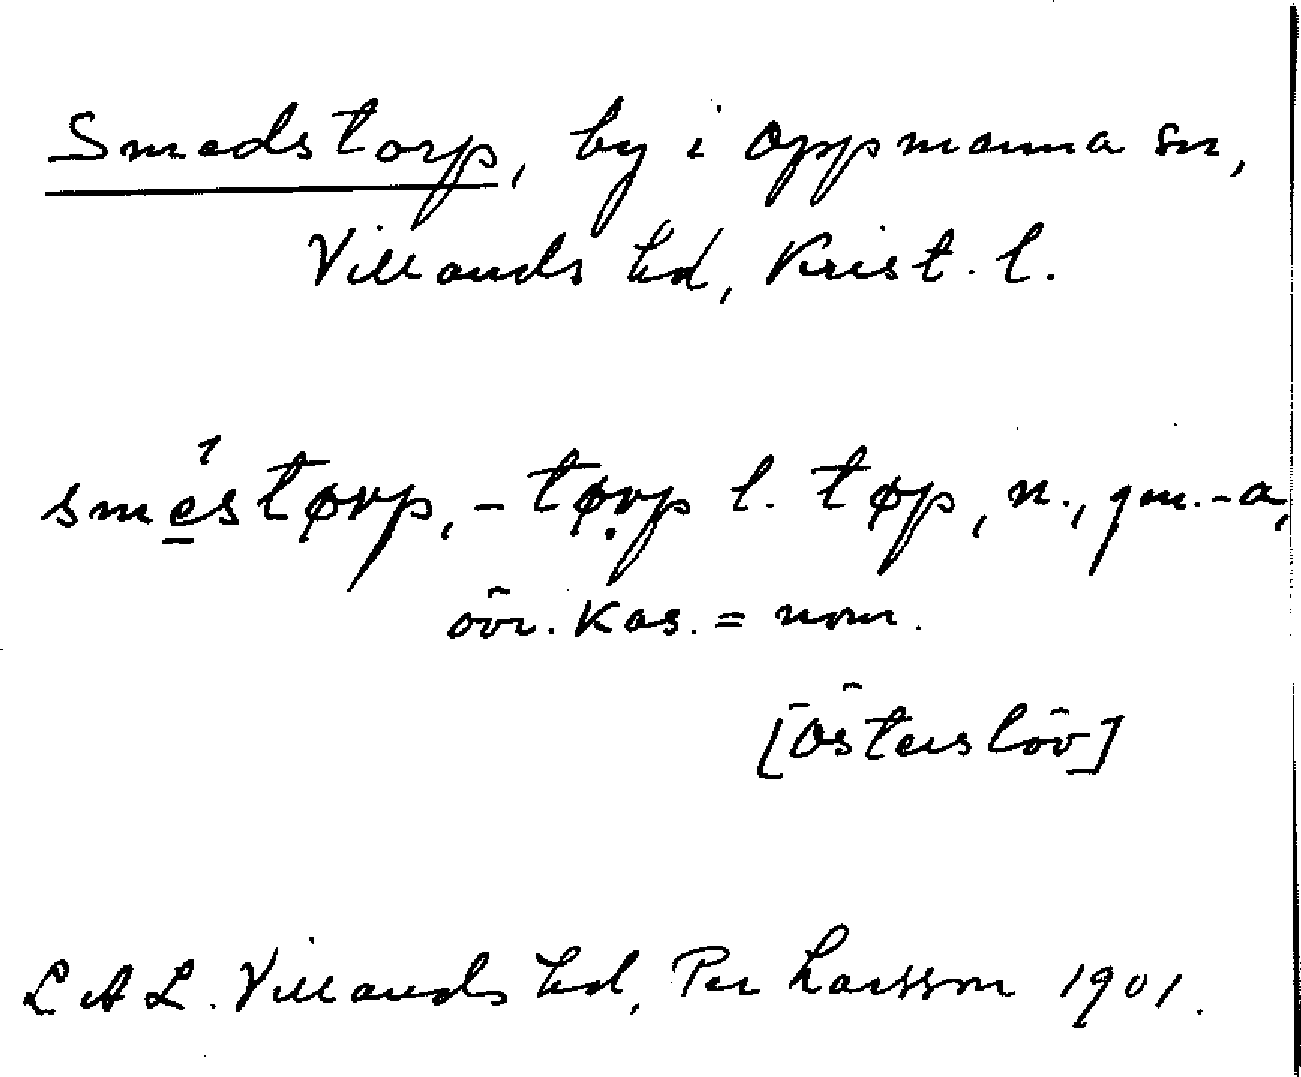 Smedstorp, by i Oppmanna sn,
Villands hd, Krist. l.
smėstørp, -tørp l. tøp, n., gm. -a,
övr. kas. = nom.
[Österslöv]
LAL. Villands hd, Per Larsson 1901.